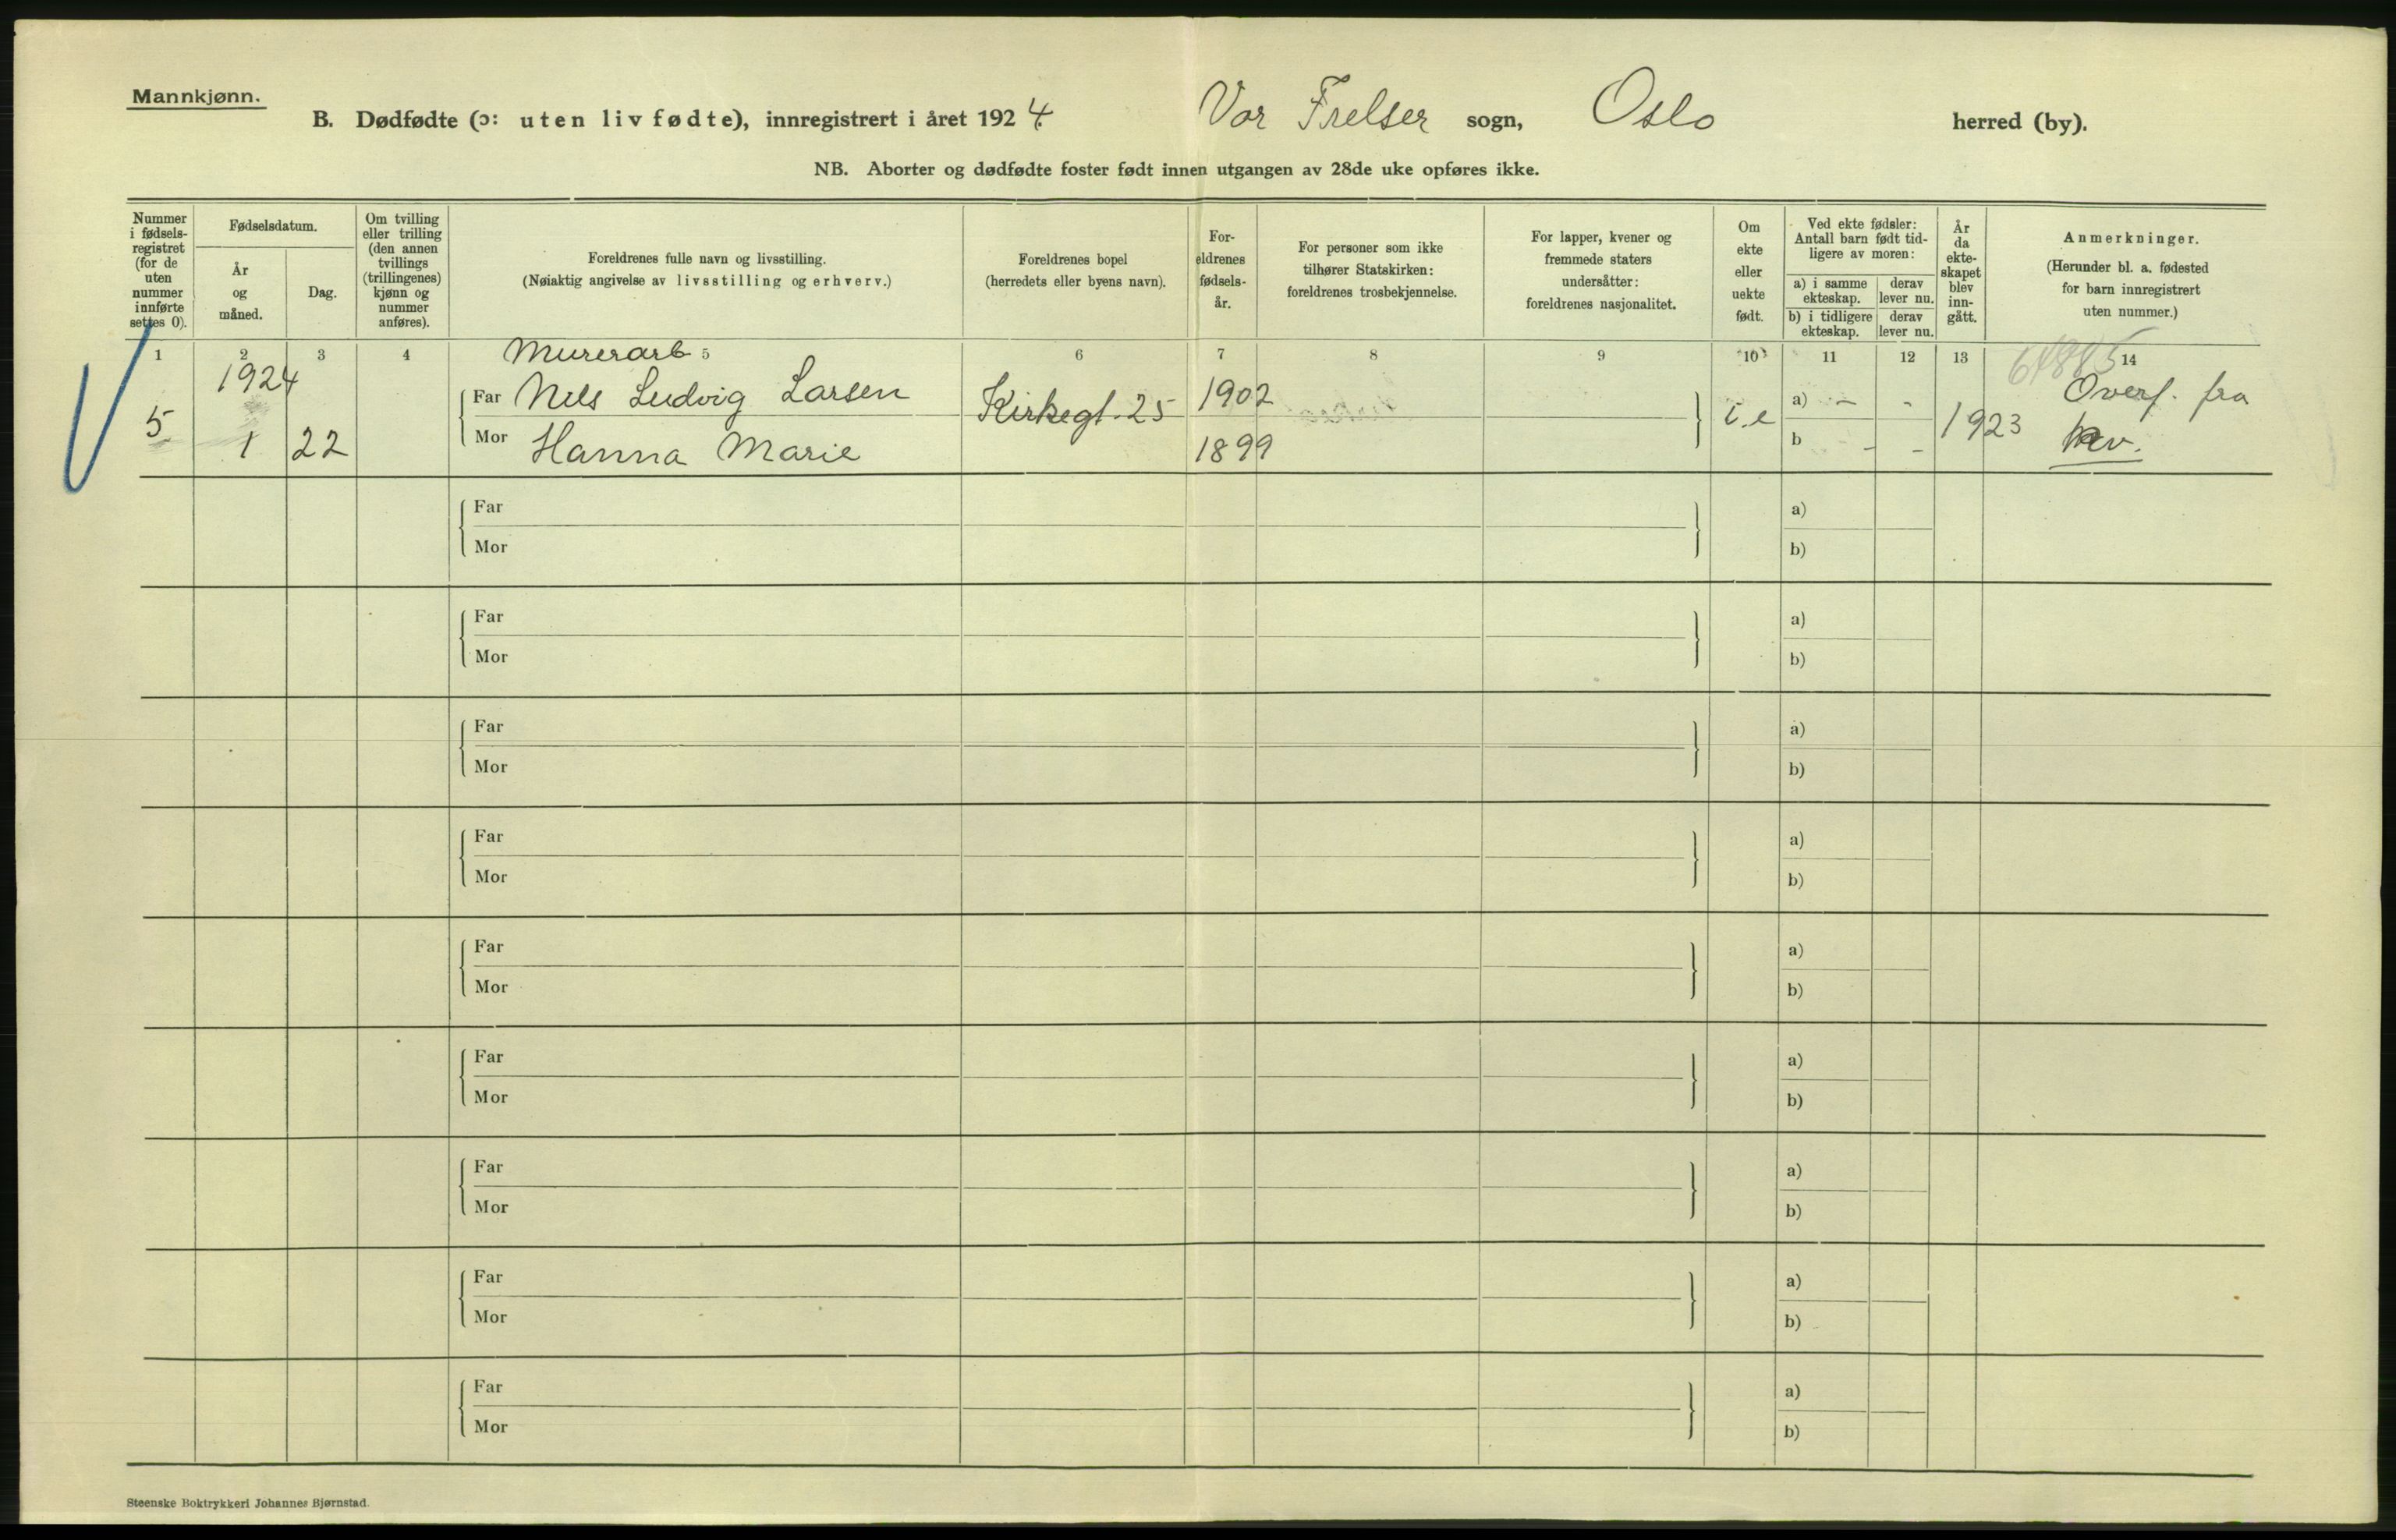 Mannkjønn.
B. Dødfødte (ɔ: uten liv fødte), innregistrert i året 1924. Vor Frelser sogn, Oslo herred (by).
NB. Aborter og dødfødte foster født innen utgangen av 28de uke opføres ikke.
Nummer i fødsels-registret (for de uten nummer innførte settes 0).
Fødselsdatum.
År og måned.
Dag.
Om tvilling eller trilling (den annen tvillings (trillingenes) kjønn og nummer anføres).
Foreldrenes fulle navn og livsstilling.
(Nøiaktig angivelse av livsstilling og erhverv.)
Foreldrenes bopel
(herredets eller byens navn).
For-eldrenes fødsels-år.
For personer som ikke tilhører Statskirken: foreldrenes trosbekjennelse.
For lapper, kvener og fremmede staters undersåtter: foreldrenes nasjonalitet.
Om ekte eller uekte født.
Ved ekte fødsler: Antall barn født tid-ligere av moren:
a) i samme ekteskap.
derav lever nu.
b) i tidligere ekteskap.
derav lever nu.
År da ekte-skapet blev inn-gått.
Anmerkninger.
(Herunder bl. a. fødested for barn innregistrert uten nummer.)
1 2 3 4 5 6 7 8 9 10 11 12 13 14
Murerarb
1924
Far Nils Ludvig Larsen Kirkegt. 25 1902 a) - - Overf. fra
5 1 22 i.e 1923
Mor Hanna Marie 1899 b - -
Far a)
Mor b)
Far a)
Mor b)
Far a)
Mor b)
Far a)
Mor b)
Far a)
Mor b)
Far a)
Mor b)
Far a)
Mor b)
Far a)
Mor b)
Far a)
Mor b)
Steenske Boktrykkeri Johannes Bjørnstad.